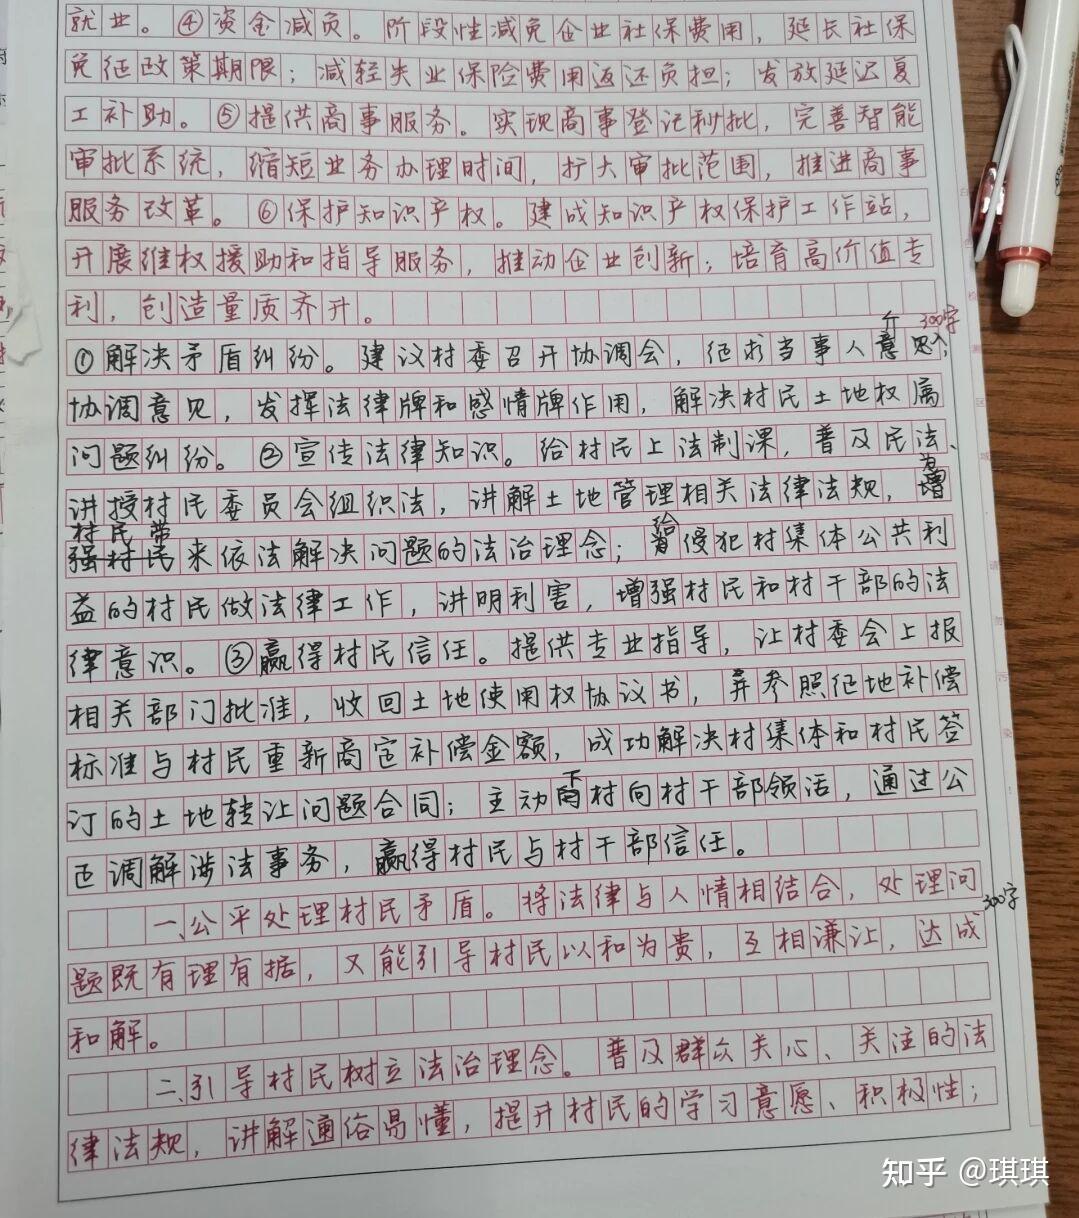 就业。④资金减负。阶段性减免企业社保费用，延长社保
免征政策期限；减轻失业保险费用返还负担；发放延迟复
工补助。⑤提供商事服务。实现商事登记秒批，完善智能
审批系统，缩短业务办理时间，扩大审批范围，推进商事
服务改革。⑥保护知识产权。建成知识产权保护工作站，
开展维权援助和指导服务，推动企业创新；培育高价值专
利，创造量质齐升。
300字
①解决矛盾纠纷。建议村委召开协调会，征求当事人意思，
协调意见，发挥法律牌和感情牌作用，解决村民土地权属
问题纠纷。②宣传法律知识。给村民上法制课，普及民法、
讲授村民委员会组织法，讲解土地管理相关法律法规，为增
村民带
强村民来依法解决问题的法治理念；给侵犯村集体公共利
益的村民做法律工作，讲明利害，增强村民和村干部的法
律意识。③赢得村民信任。提供专业指导，让村委会上报
相关部门批准，收回土地使用权协议书，并参照征地补偿
标准与村民重新商定补偿金额，成功解决村集体和村民签
订的土地转让问题合同；主动下村向村干部领活，通过公
正调解涉法事务，赢得村民与村干部信任。
300字
一、公平处理村民矛盾。将法律与人情相结合，处理问
题既有理有据，又能引导村民以和为贵，互相谦让，达成
和解。
二、引导村民树立法治理念。普及群众关心、关注的法
律法规，讲解通俗易懂，提升村民的学习意愿、积极性；
知乎 @琪琪